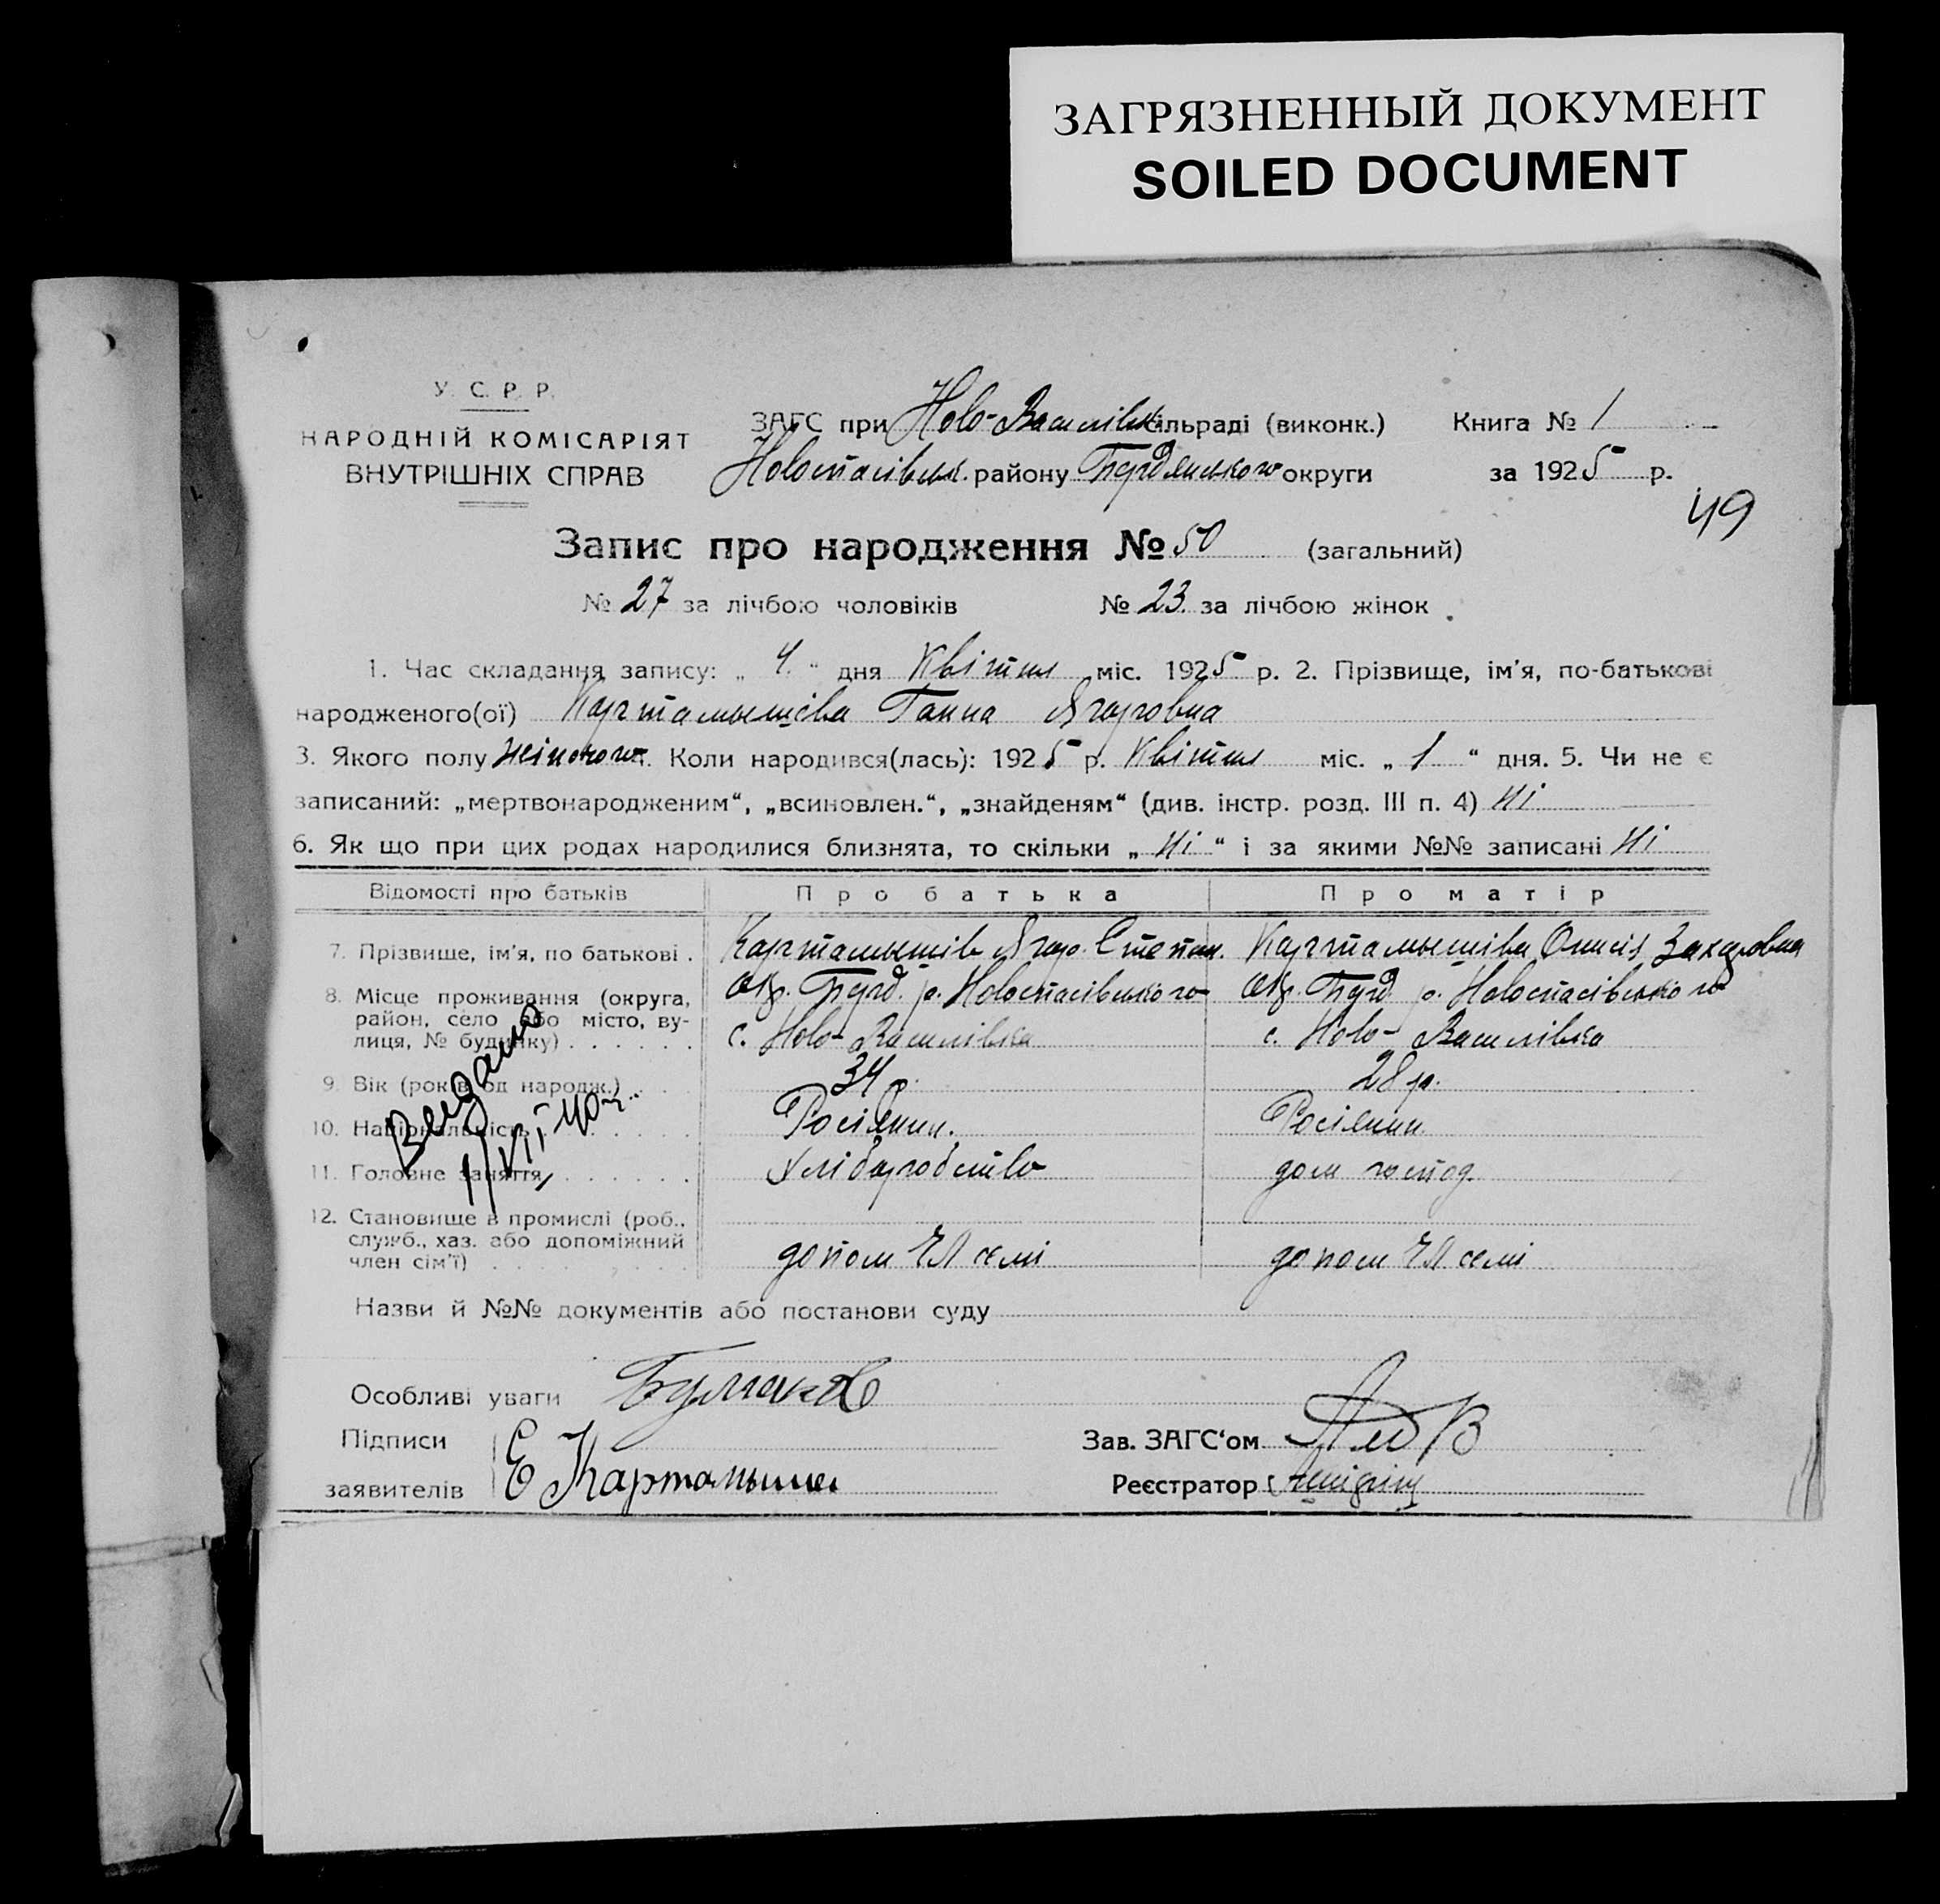 ЗАГРЯЗНЕННЫЙ ДОКУМЕНТ
SOILED DOCUMENT
У. С. Р. Р.
НАРОДНІЙ КОМІСАРІЯТ
ВНУТРІШНІХ СПРАВ
ЗАГС при Ново-Василівск. сільраді (виконк.) Книга № 1
Новоспасівськ. району Бердянського округи за 1925 р.
49
Запис про народження № 50 (загальний)
№ 27 за лічбою чоловіків № 23. за лічбою жінок
1. Час складання запису: „ 4. “ дня Квітня міс. 1925 р. 2. Прізвище, ім'я, по-батькові
народженого(ої) Картамышіва Ганна Ягоровна
3. Якого полу жіночого 4. Коли народився(лась): 1925 р. Квітня міс. „ 1 “ дня. 5. Чи не є
записаний: „мертвонародженим“, „всиновлен.“, „знайденям“ (див. інстр. розд. III п. 4) Ні
6. Як що при цих родах народилися близнята, то скільки „ Ні “ і за якими №№ записані Ні
Відомості про батьків Про батька Про матір
7. Прізвище, ім'я, по батькові . Картамышів Ягор Степан. Картамышіва Онисія Захаровна
8. Місце проживання (округа, Окр. Берд. р. Новоспасівського Окр. Берд. р. Новоспасівського
район, село або місто, ву-
лиця, № будинку) . . . . . . с. Ново-Василівка с. Ново-Василівка
9. Вік (років од народж.) . . 34 р. 28 р.
10. Національність . . . . . . Росіянин. Росіянин
11. Головне заняття, . . . . . . Хліборобство дом господ.
12. Становище в промислі (роб.,
служб., хаз. або допоміжний допом ЧЛ семі допом ЧЛ семі
член сім'ї) . . . . . . . . .
Видано
1/VII-40 г.
Назви й №№ документів або постанови суду
Особливі уваги
Підписи Зав. ЗАГС'ом
заявителів Е Картамышев Реєстратор